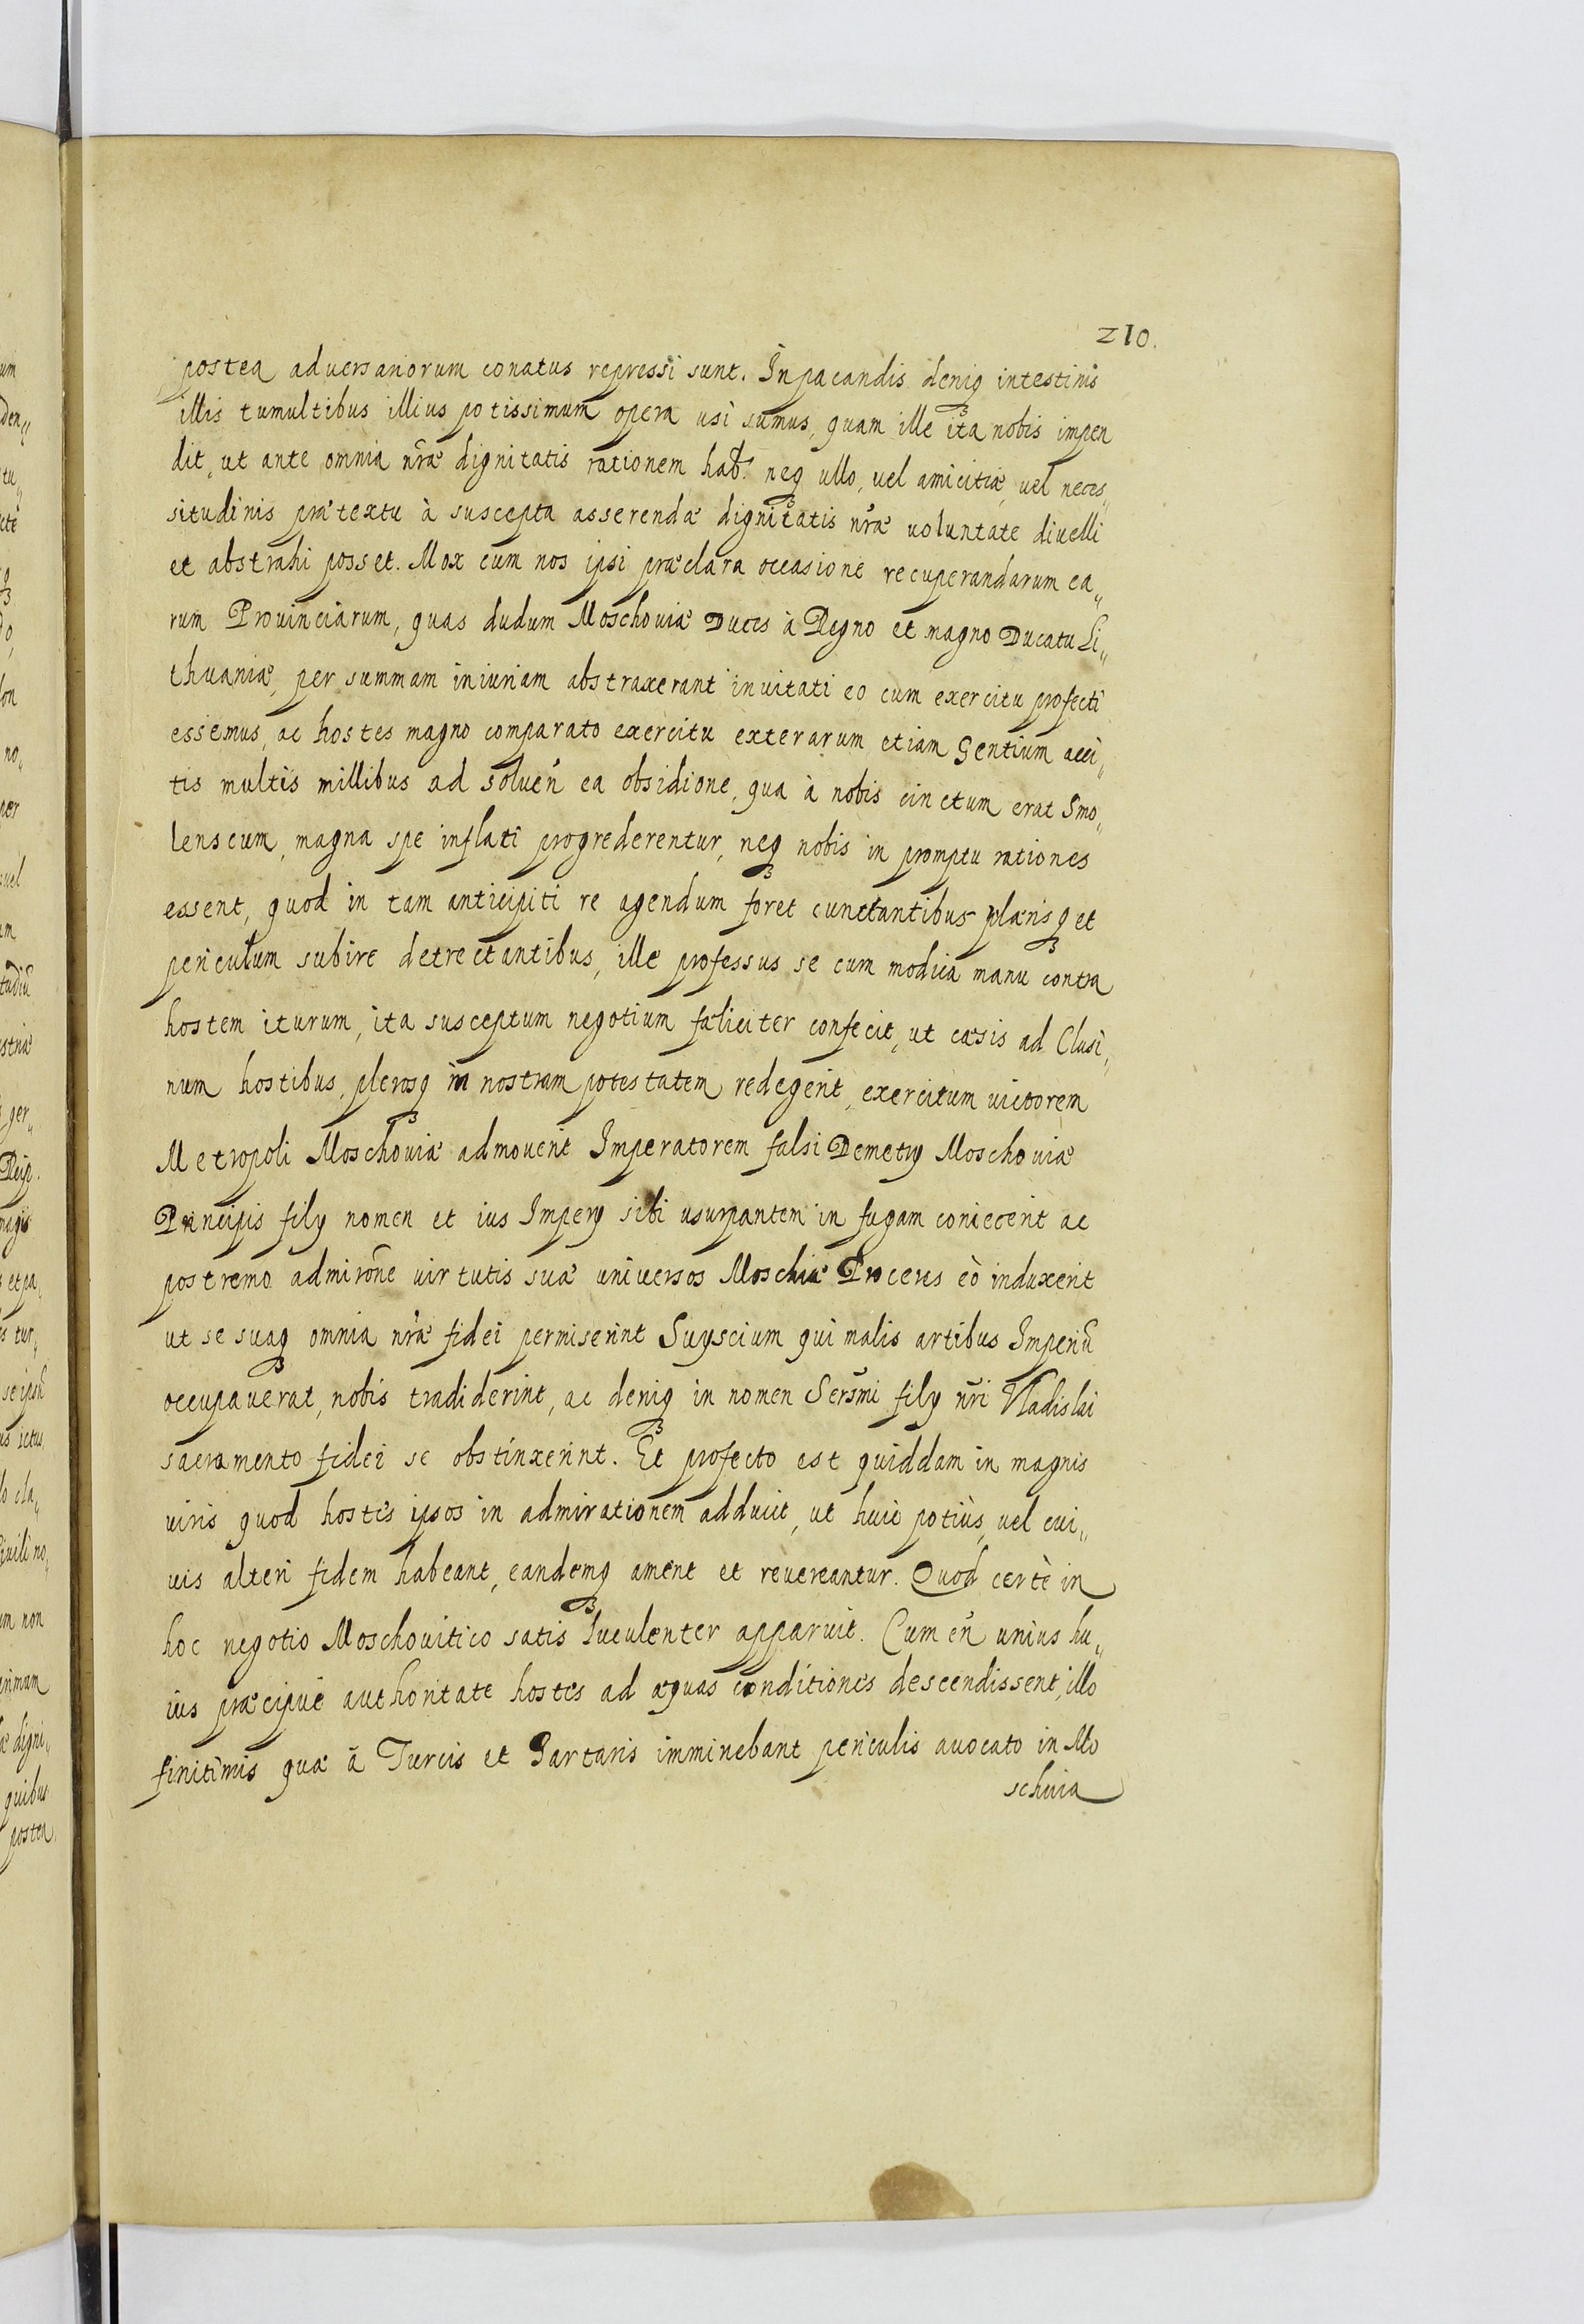 210.
postea aduersariorum conatus repressi sunt. In pacandis deniq3 intestinis
illis tumultibus illius potissimum opera usi sumus, quam ille ita nobis impen
dit, ut ante omnia nr̃æ dignitatis rationem hab: neq3 ullo, uel amicitiæ, uel neces„
situdinis prætextu à suscepta asserendæ dignitatis nr̃æ uoluntate diuelli
et abstrahi posset. Mox cum nos ipsi præclara occasione recuperandarum ea„
rum Prouinciarum, quas dudum Moschouiæ Duces à Regno et magno Ducatu Li„
thuaniæ, per summam iniuriam abstraxerant inuitati eo cum exercitu profecti
essemus, ac hostes magno comparato exercitu exterarum etiam Gentium acci„
tis multis millibus ad soluen̄ ea obsidione, qua à nobis cinctum erat Smo„
lenscum, magna spe inflati progrederentur, neq3 nobis in promptu rationes
essent, quod in tam anticipiti re agendum foret cunctantibus plærisq3 et
periculum subire detrectantibus, ille professus se cum modica manu contra
hostem iturum, ita susceptum negotium fæliciter confecit, ut cæsis ad Clusi„
num hostibus, plerosq3 in nostram potestatem redegerit, exercitum uictorem
Metropoli Moschouiæ admouerit Imperatorem falsi Demetry Moschouiæ
Principis fily nomen et ius Impery sibi usurpantem in fugam coniecerit ac
postremo admirōne uirtutis suæ uniuersos Moschiæ Proceres eò induxerit
ut se suaq3 omnia nr̃æ fidei permiserint Suyscium qui malis artibus Imperiū
occupauerat, nobis tradiderint, ac deniq3 in nomen Serm̄i fily nr̃i Vladislai
sacramento fidei se obstinxerint. Et profecto est quiddam in magnis
uiris quod hostes ipsos in admirationem adducit, ut huic potiùs, uel cui„
uis alteri fidem habeant, eandemq3 ament et reuereantur. Quod certè in
hoc negotio Moschouitico satis luculenter apparuit. Cum en̄ unius hu„
ius præcipuè authoritate hostes ad æquas conditiones descendissent, illo
finitimis quæ à Turcis et Tartaris imminebant periculis auocato in Mo
schuia